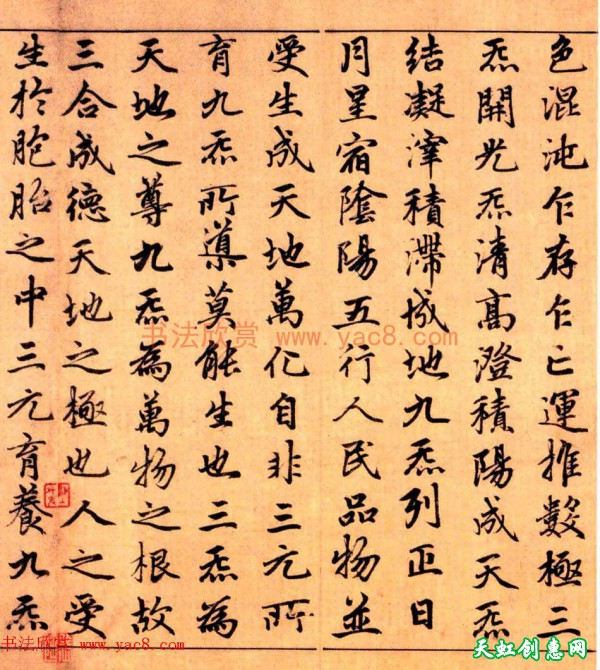 色混沌乍存乍亡運推數極三
炁開光炁清高澄積陽成天炁
結凝滓積滯成地九炁列正日
月星宿陰陽五行人民品物並
受生成天地萬化自非三元所
育九炁所導莫能生也三炁為
天地之尊九炁為萬物之根故
三合成德天地之極也人之受
生於胞胎之中三元育養九炁
书法欣赏 www.yac8.com
书法欣赏 www.yac8.com
天虹创意网